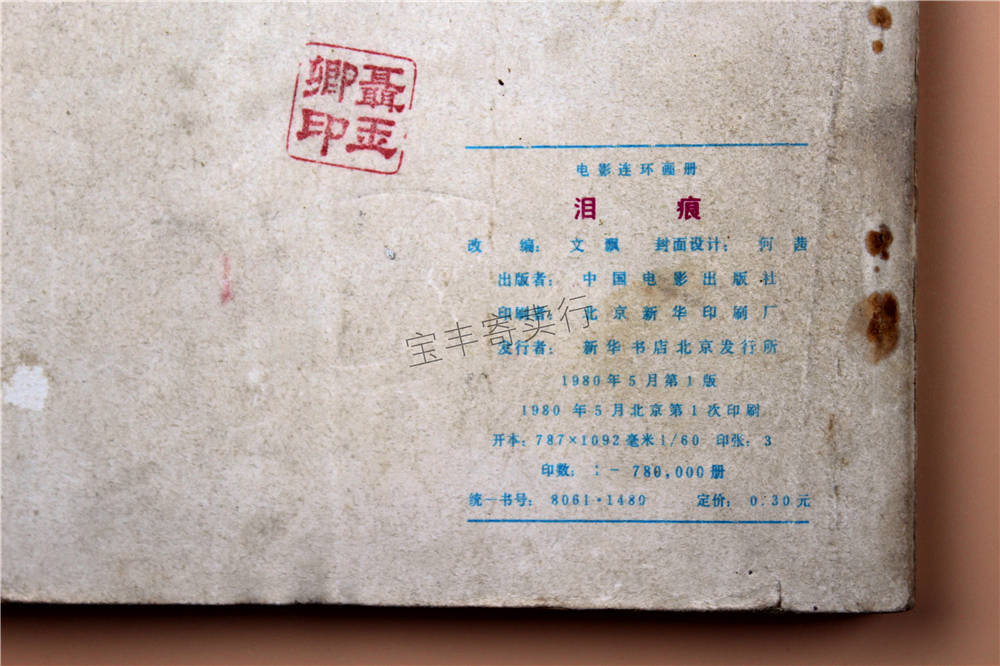 聶玉
卿印
电影连环画册
泪痕
改编：文飘 封面设计：何茜
出版者：中国电影出版社
印刷者：北京新华印刷厂
发行者：新华书店北京发行所
1980年5月第1版
1980年5月北京第1次印刷
开本：787×1092毫米1/60 印张：3
印数：：－780,000册
统一书号：8061·1480 定价：0.30元
宝丰寄卖行